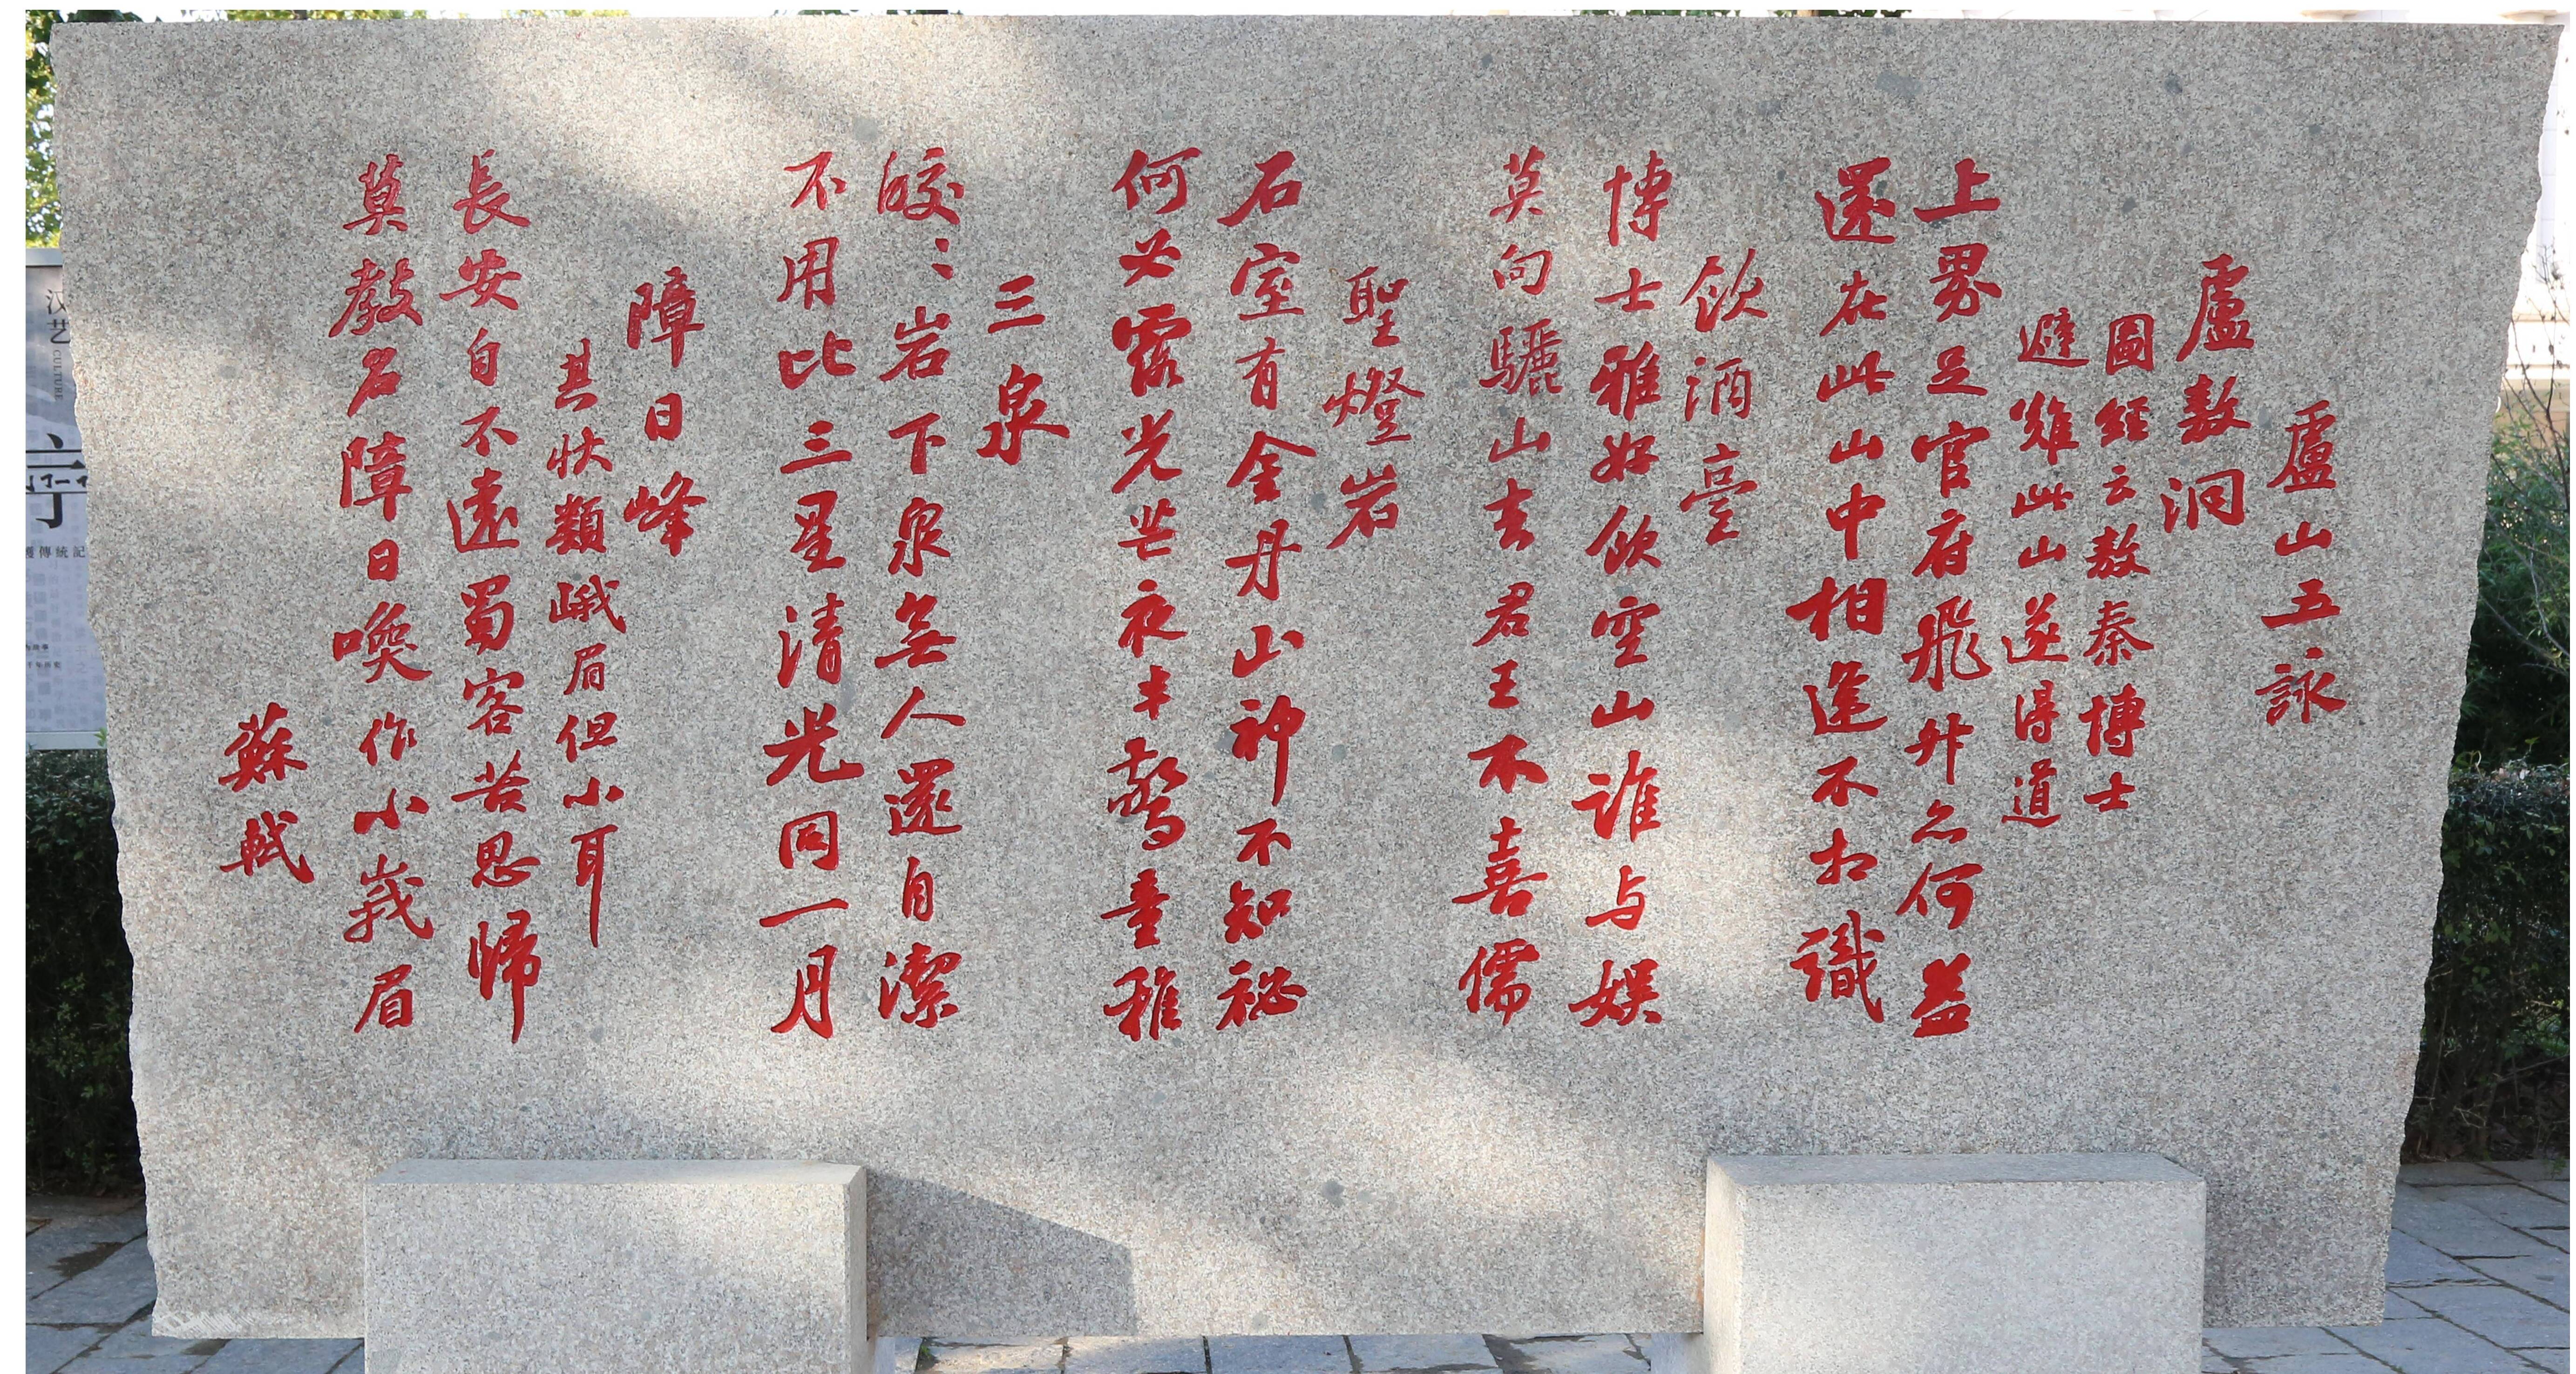 盧山五詠
盧敖洞
圖經云敖秦博士
避難此山遂得道
上界足官府飛升亦何益
還在此山中相逢不相識
飲酒臺
博士雅好飲空山誰与娛
莫向驪山去君王不喜儒
聖燈岩
石室有金丹山神不知秘
何必露光芒夜半驚童稚
三泉
皎〻岩下泉無人還自潔
不用比三星清光同一月
障日峰
其狀類峨眉但小耳
長安自不遠蜀客苦思歸
莫教名障日喚作小峩眉
蘇軾
汉艺
CULTURE